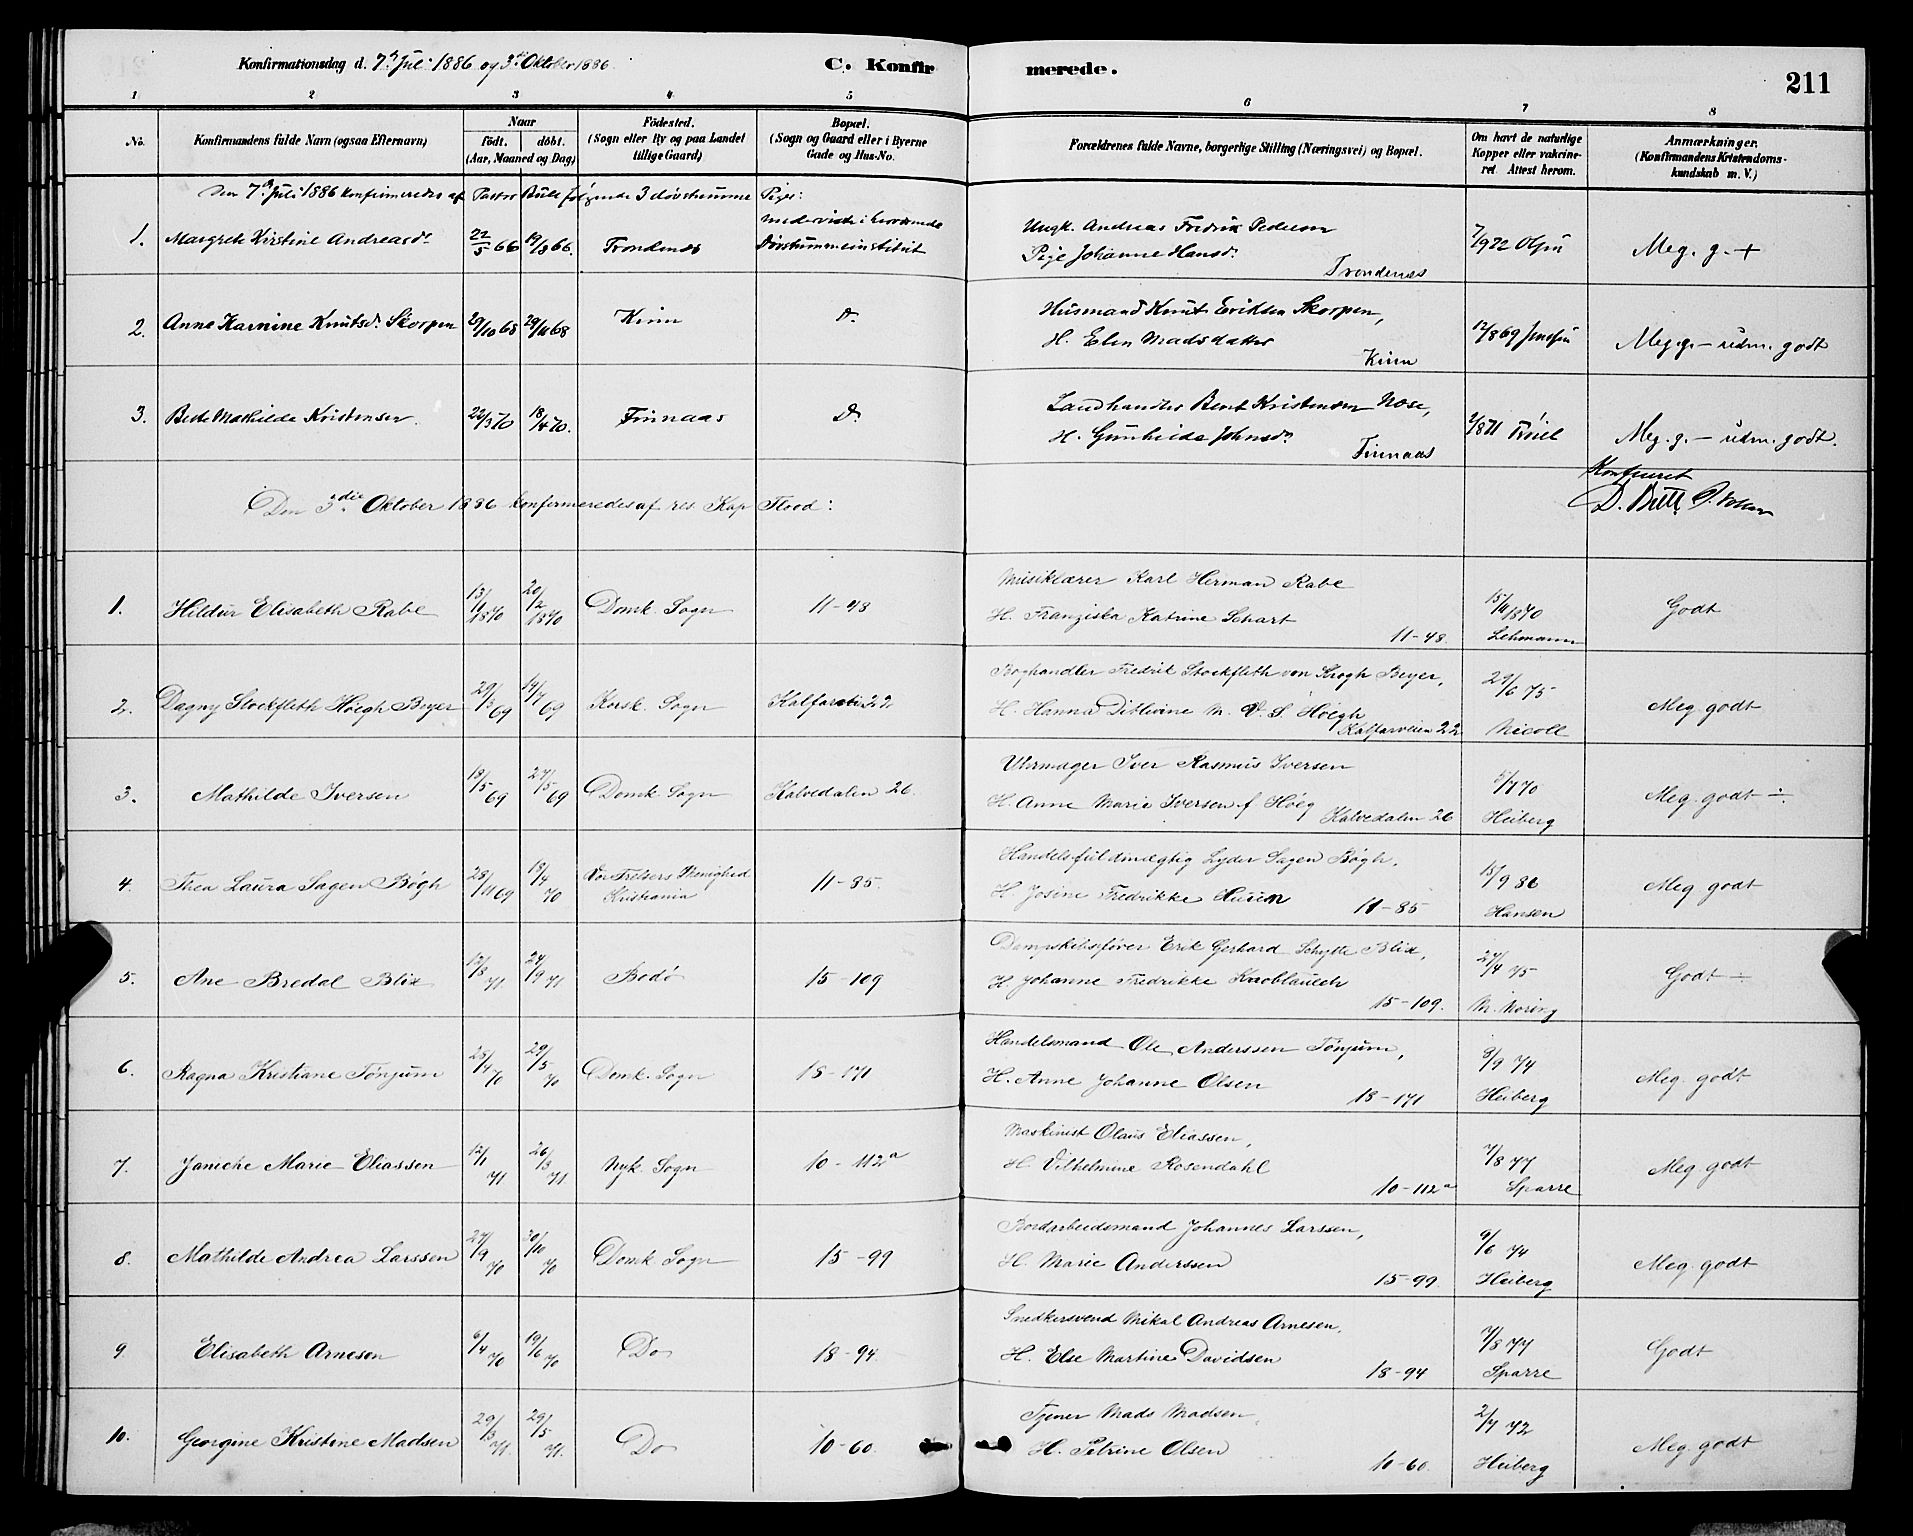 Konfirmationsdag d. 7de Juli 1886 og 3die Oktober 1886. C. Konfirmerede. 211
1 2 3 4 5 6 7 8
No. Konfirmandens fulde Navn (ogsaa Efternavn) Naar født. døbt. (Aar, Maaned og Dag) Fødested. (Sogn eller By og paa Landet tillige Gaard) Bopæl. (Sogn og Gaard eller i Byerne Gade og Hus-No.) Forældrenes fulde Navne, borgerlige Stilling (Næringsvei) og Bopæl. Om havt de naturlige Kopper eller vakcineret. Attest herom. Anmærkninger. (Konfirmandens Kristendomskundskab m. V.)
Den 7de Juli 1886 konfirmeredes af Pastor Bull følgende 3 døvstumme Piger:
1. Margrete Kirstine Andreasdr. 22/5 66 19/8 66. Trondenæs Døvstummeinstitut Ungk. Andreas Fredrik Pedersen
Pige Johanne Hansdr. Trondenæs 7/9 72 Meg. g. +
2. Anne Karnine Knutsdr. Skorpen 29/10 68 29/11 68 Kinn Do. Husmand Knut Eriksen Skorpen,
H. Elen Madsdatter Kinn 12/8 69 Meg. g. – udm. godt
3. Berte Mathilde Kristensen. 22/3 70 18/4 70. Finnaas Do. Landhandler Bent Kristensen Nose,
H. Gunhilde Johnsdr. Finnaas 2/8 71 Meg. g. – udm. godt.
Konfereret
Den 3die Oktober 1886 konfirmeredes af res. Kap. Flood:
1. Hildur Elisabeth Rabe 13/11 1870 20/12 1870 Domk. Sogn 11-48 Musiklærer Karl Herman Rabe
H. Franziska Katrine Schart 11-48. 15/11 1870 Lehmann Godt
2. Dagny Stockfleth Høegh Beyer 29/3 69 14/7 69 Korsk. Sogn Kalfarvei 22 Boghandler Fredrik Stockfleth von Krogh Beyer,
H. Hanna Ditlevine M. V. S. Høegh Kalfarveien 22 21/6 75 Nicoll Meg godt
3. Mathilde Iversen 18/5 69 27/5 69 Domk. Sogn Kalvedalen 26. Uhrmager Iver Rasmus Iversen
H. Anne Marie Iversen f. Høeg Kalvedalen 26 5/7 70 Heiberg Meg. godt ÷.
4. Thea Laura Sagen Bøgh 28/11 69 18/4 70 Vor Frelsers Menighed Kristiania 11-85. Handelsfuldmægtig Lyder Sagen Bøgh.
H. Josine Fredrikke 11-85 15/9 86 Hansen Meg godt
5. Ane Bredal Blix 12/8 71 24/9 71 Bodø 15-109 Dampskibsfører Erik Gerhard Schytte Blix,
H. Johanne Fredrikke Knoblauch 15-109. 27/4 75 Godt ÷
6. Ragna Kristiane Tønjum 28/4 70 29/5 70 Domk. Sogn 18-171 Handelsmand Ole Anderssen Tønjum,
H. Anne Johanne Olsen 18-171 9/9 74 Heiberg Meg. godt
7. Janiche Marie Eliassen 12/1 71 26/3 71 Nyk. Sogn 10-112a Maskinist Olaus Eliassen,
H. Vilhelmine Rosendahl 10-112a 7/8 77 Sparre Meg godt
8. Mathilde Andrea Larssen 27/9 70 20/10 70 Domk Sogn 15-99 Jordarbeidsmand Johannes Larssen,
H. Marie Anderssen 15-99. 9/6 74 Heiberg Meg. godt
9. Elisabeth Arnesen 6/4 70 19/6 70 Do 18-94. Snedkersvend Mikal Andreas Arnesen,
H. Else Martine Davidsen 18-94 7/8 77 Sparre Godt
10. Georgine Kristine Madsen 29/3 71. 29/5 71. Do 10-60. Tjener Mads Madsen
H. Petrine Olsen 10-60. 2/7 72 Heiberg Meg. godt